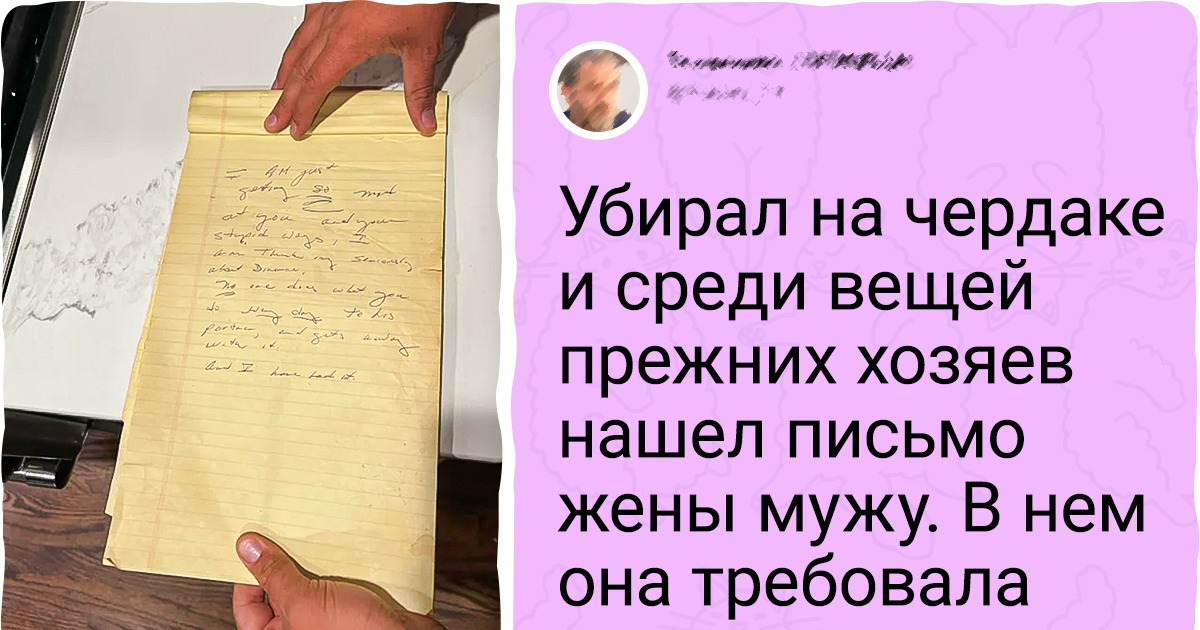 I AM just
getting so mad
at you and your
stupid ways, I
am thinking seriously
about Divorce.
No one does what you
do every day to his
partner, and gets away
with it.
And I have had it.
Убирал на чердаке
и среди вещей
прежних хозяев
нашел письмо
жены мужу. В нем
она требовала